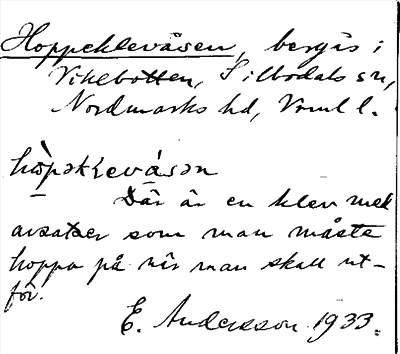 Hoppeklevåsen, bergås i
Vikebotten, Silbodals sn,
Nordmarks hd, Vrml l.
hɷ̀pəklevásən
Där är en klev med
avsatser som man måste
hoppa på när man skall ut-
för.
E. Andersson 1933.